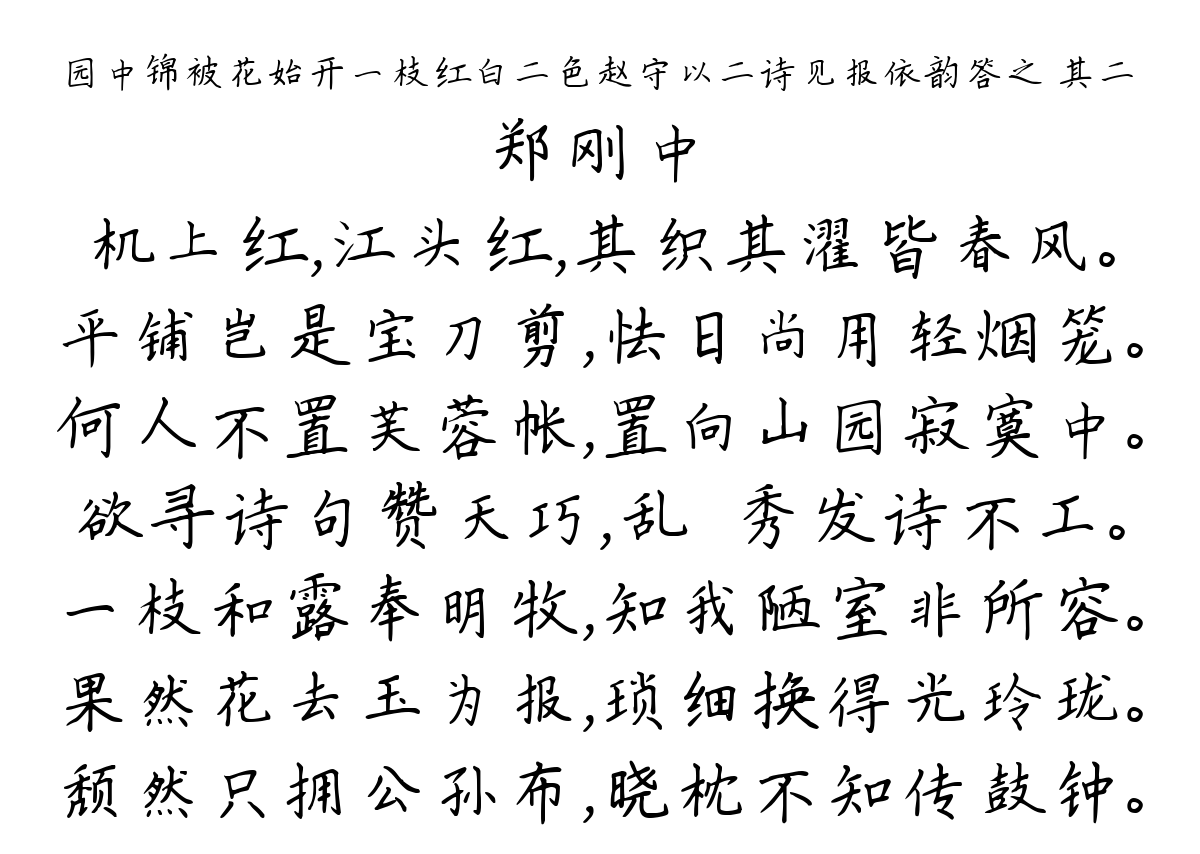 园中锦被花始开一枝红白二色赵守以二诗见报依韵答之 其二
郑刚中
机上红,江头红,其织其濯皆春风。
平铺岂是宝刀剪,怯日尚用轻烟笼。
何人不置芙蓉帐,置向山园寂寞中。
欲寻诗句赞天巧,乱 秀发诗不工。
一枝和露奉明牧,知我陋室非所容。
果然花去玉为报,琐细换得光玲珑。
颓然只拥公孙布,晓枕不知传鼓钟。